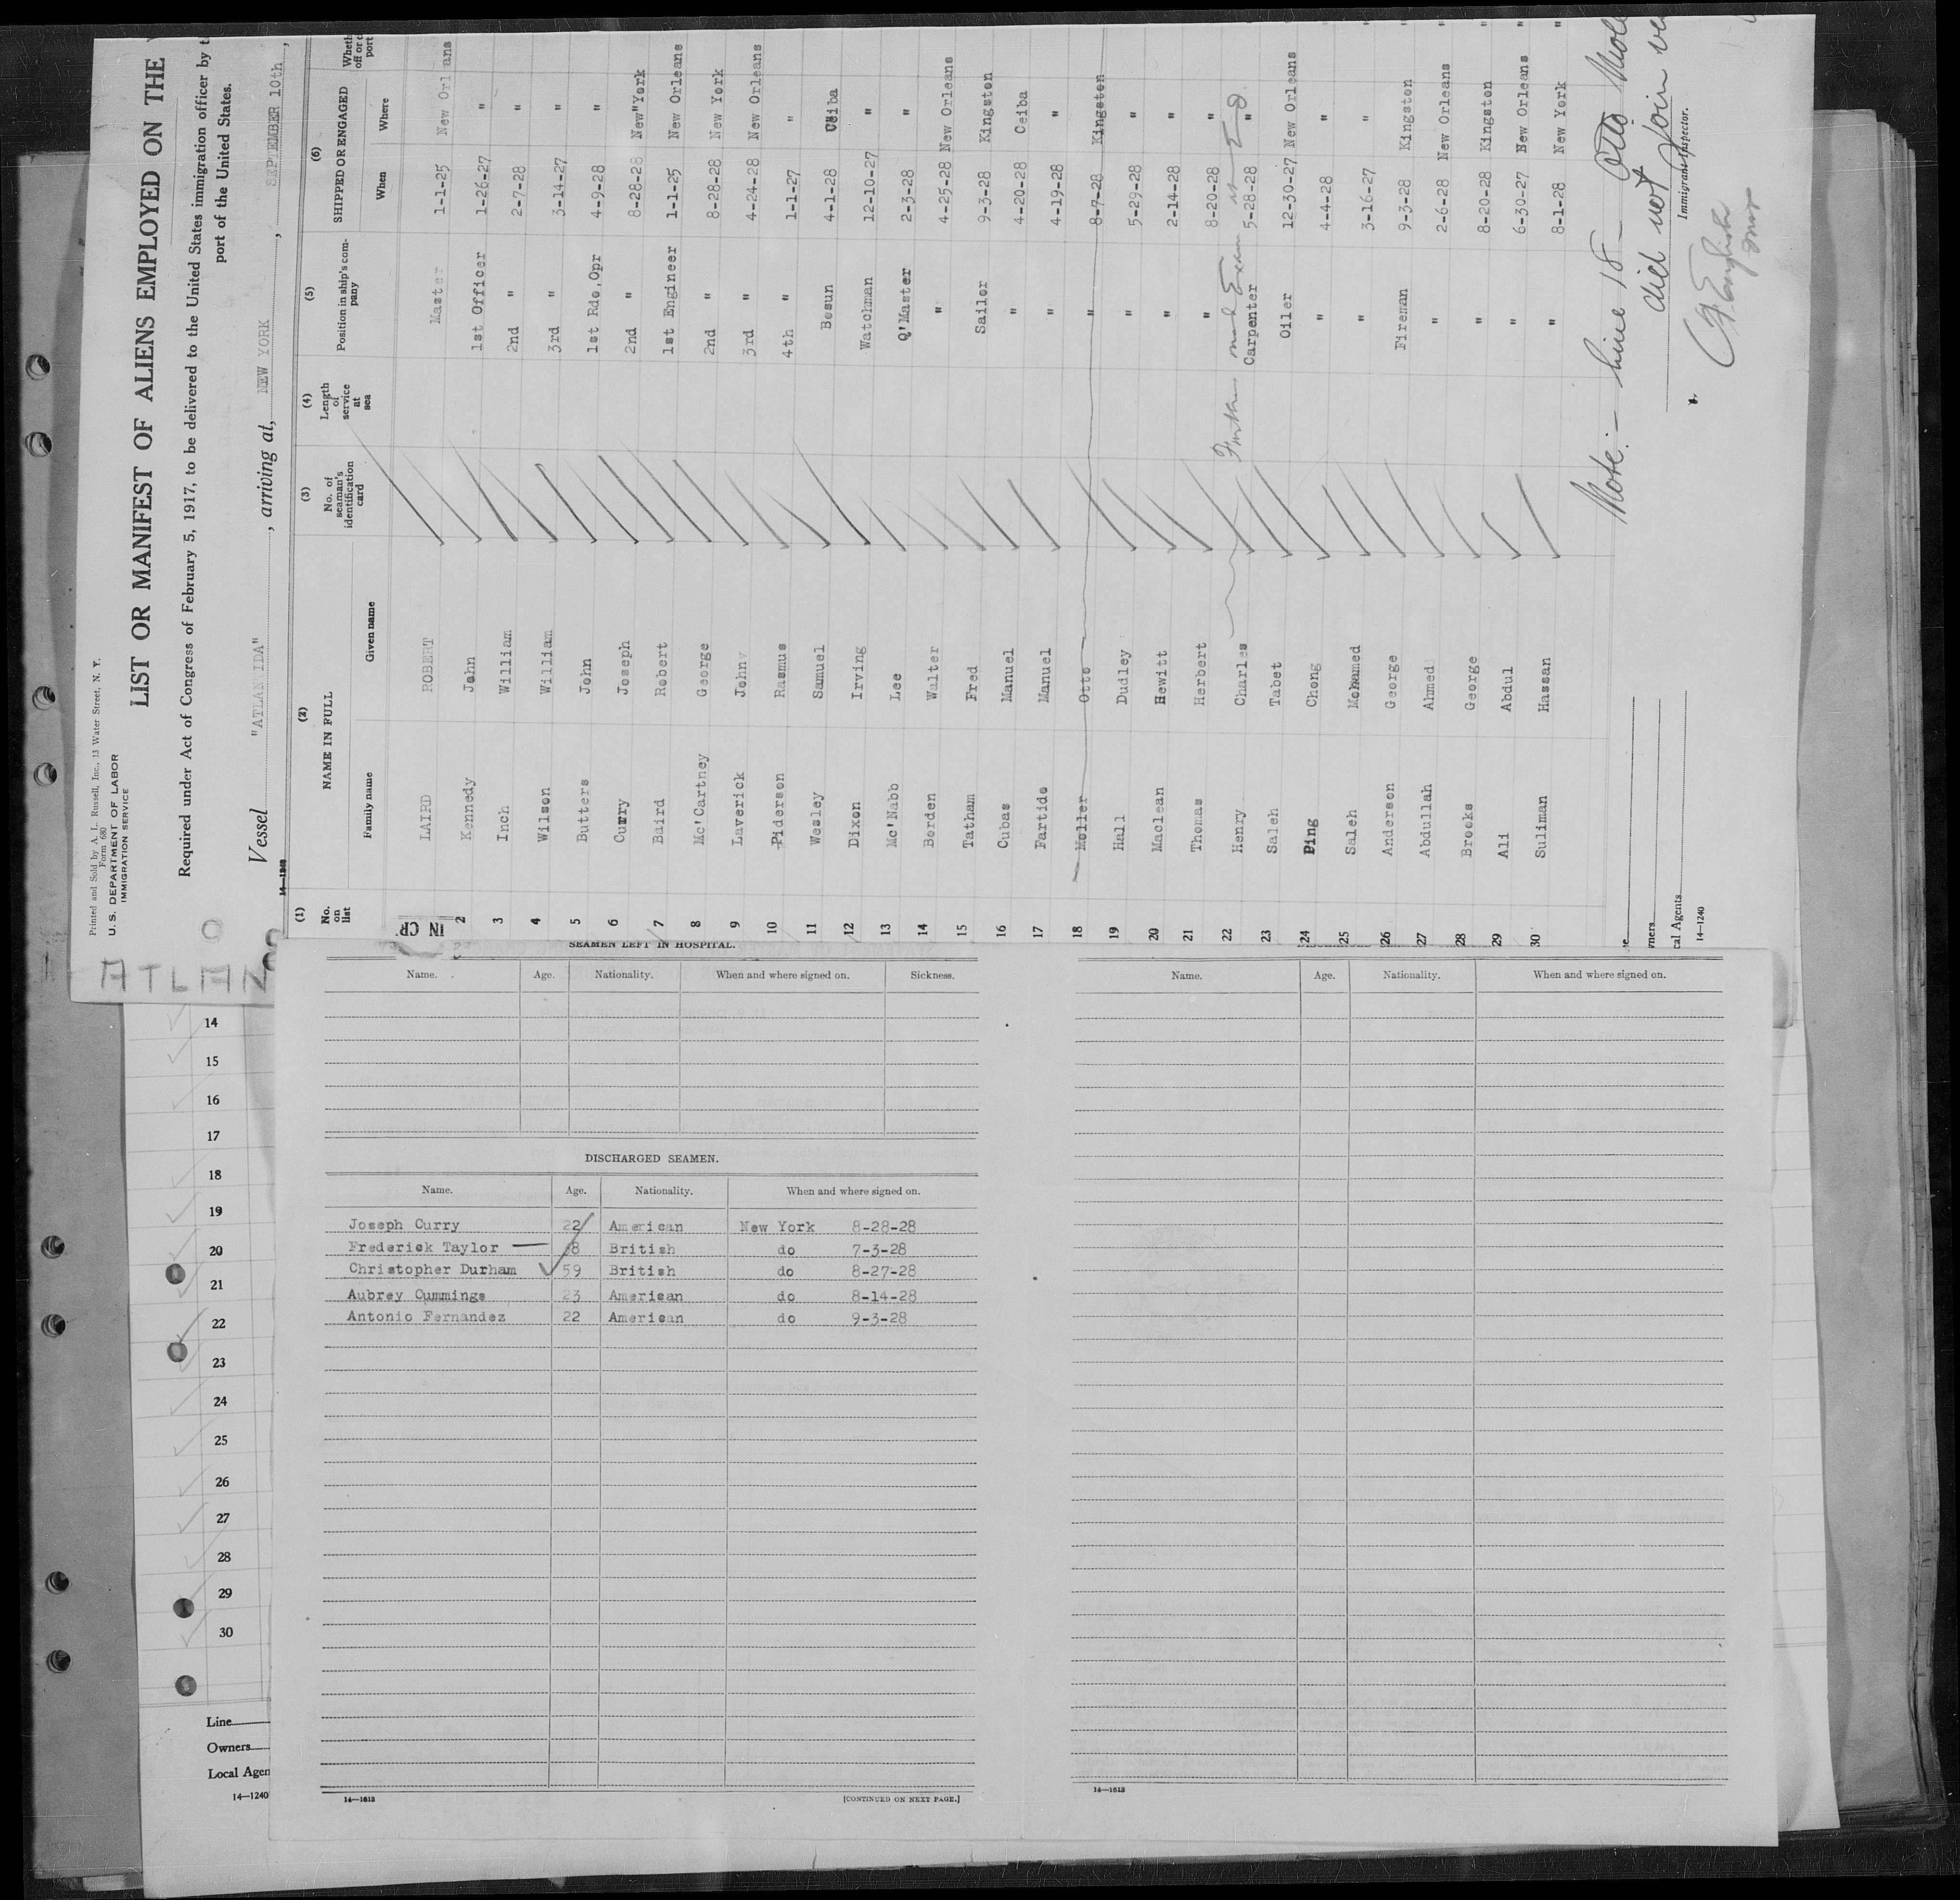 Printed and Sold by A. L. Russell, Inc., 13 Water Street, N. Y.
Form 680
U. S. DEPARTMENT OF LABOR
IMMIGRATION SERVICE
LIST OR MANIFEST OF ALIENS EMPLOYED ON THE
Required under Act of Congress of February 5, 1917, to be delivered to the United States immigration officer by t
port of the United States.
Vessel "ATLANTIDA", arriving at, NEW YORK, SEPTEMBER 10th,
14—1240
(1) (2) (3) (4) (5) (6)
No. on list NAME IN FULL No. of seaman's identification card Length of service at sea Position in ship's company SHIPPED OR ENGAGED
Family name Given name When Where
IN CR LAIRD ROBERT Master 1-1-25 New Orleans
2 Kennedy John 1st Officer 1-26-27 "
3 Inch William 2nd " 2-7-28 "
4 Wilson William 3rd " 3-14-27 "
5 Butters John 1st Rdo.Opr 4-9-28 "
6 Curry Joseph 2nd " 8-28-28 New York
7 Baird Robert 1st Engineer 1-1-25 New Orleans
8 Mc'Cartney George 2nd " 8-28-28 New York
9 Laverick John 3rd " 4-24-28 New Orleans
10 Piderson Rasmus 4th " 1-1-27 "
11 Wesley Samuel Bosun 4-1-28 Ceiba
12 Dixon Irving Watchman 12-10-27 "
13 Mc'Nabb Lee Q'Master 2-3-28 "
14 Borden Walter " 4-25-28 New Orleans
15 Tatham Fred Sailor 9-3-28 Kingston
16 Cubas Manuel " 4-20-28 Ceiba
17 Fartido Manuel " 4-19-28 "
18 Moller Otto " 8-7-28 Kingston
19 Hall Dudley " 5-29-28 "
20 Maclean Hewitt " 2-14-28 "
21 Thomas Herbert " 8-20-28 "
22 Henry Charles Carpenter 5-28-28 "
23 Saleh Tabet Oiler 12-30-27 New Orleans
24 Ping Chong " 4-4-28 "
25 Saleh Mohamed " 3-16-27 "
26 Anderson George Fireman 9-3-28 Kingston
27 Abdullah Ahmed " 2-6-28 New Orleans
28 Brooks George " 8-20-28 Kingston
29 Ali Abdul " 6-30-27 New Orleans
30 Suliman Hassan " 8-1-28 New York
Note:- Line 18 - Otto Moll
did not join ve
Immigrant Inspector.
wners
cal Agents
14—1240
ATLAN
SEAMEN LEFT IN HOSPITAL.
Name. Age. Nationality. When and where signed on. Sickness.
DISCHARGED SEAMEN.
Name. Age. Nationality. When and where signed on.
Joseph Curry 22 American New York 8-28-28
Frederick Taylor British do 7-3-28
Christopher Durham 59 British do 8-27-28
Aubrey Cummings 23 American do 8-14-28
Antonio Fernandez 22 American do 9-3-28
14—1613
[CONTINUED ON NEXT PAGE.]
Name. Age. Nationality. When and where signed on.
14—1613
14
15
16
17
18
19
20
21
22
23
24
25
26
27
28
29
30
Line
Owners
Local Agen
14—1240